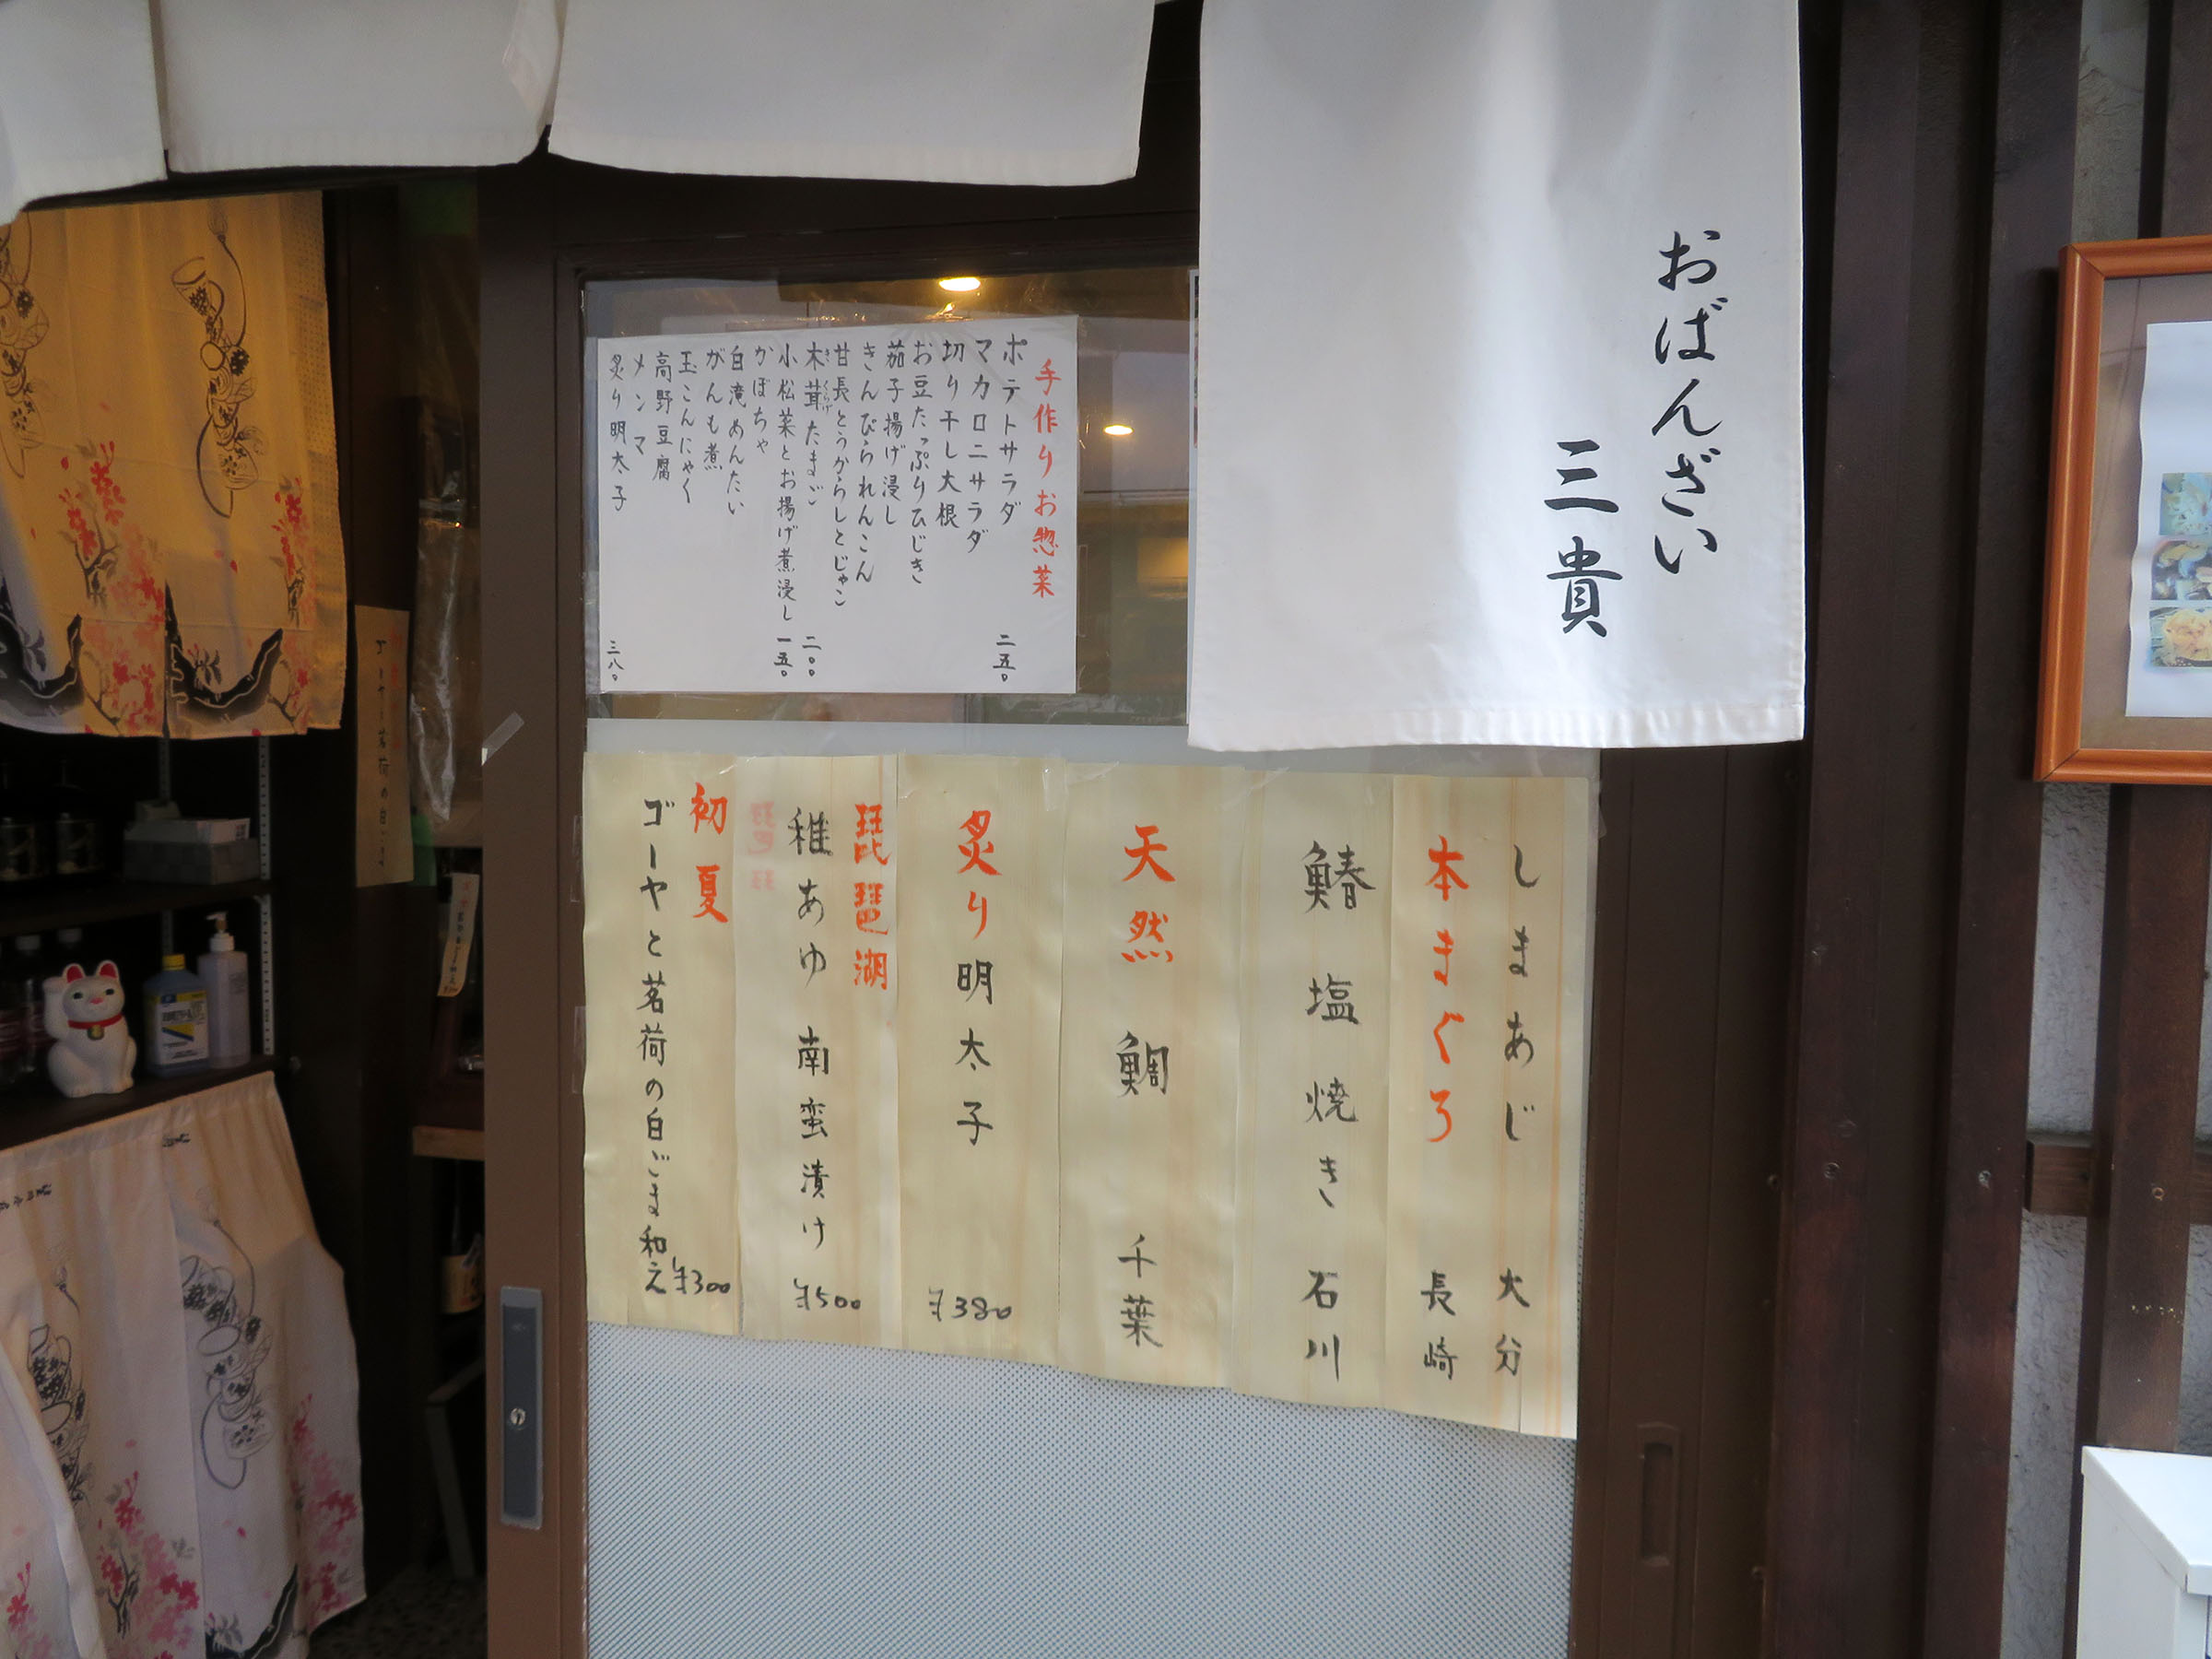 おばんざい
三貴
手作りお惣菜
ポテトサラダ 二五〇
マカロニサラダ
切り干し大根
お豆たっぷりひじき
茄子揚げ浸し
きんぴられんこん
甘長とうがらしとじゃこ
木茸たまご 二〇〇
きくらげ
小松菜とお揚げ煮浸し 一五〇
かぼちゃ
白滝めんたい
がんも煮
玉こんにゃく
高野豆腐
メンマ
炙り明太子 三八〇
しまあじ 大分
本まぐろ 長崎
鰆塩焼き 石川
天然鯛 千葉
炙り明太子 ¥380
琵琶湖
稚あゆ 南蛮漬け ¥500
初夏
ゴーヤと茗荷の白ごま和え ¥300